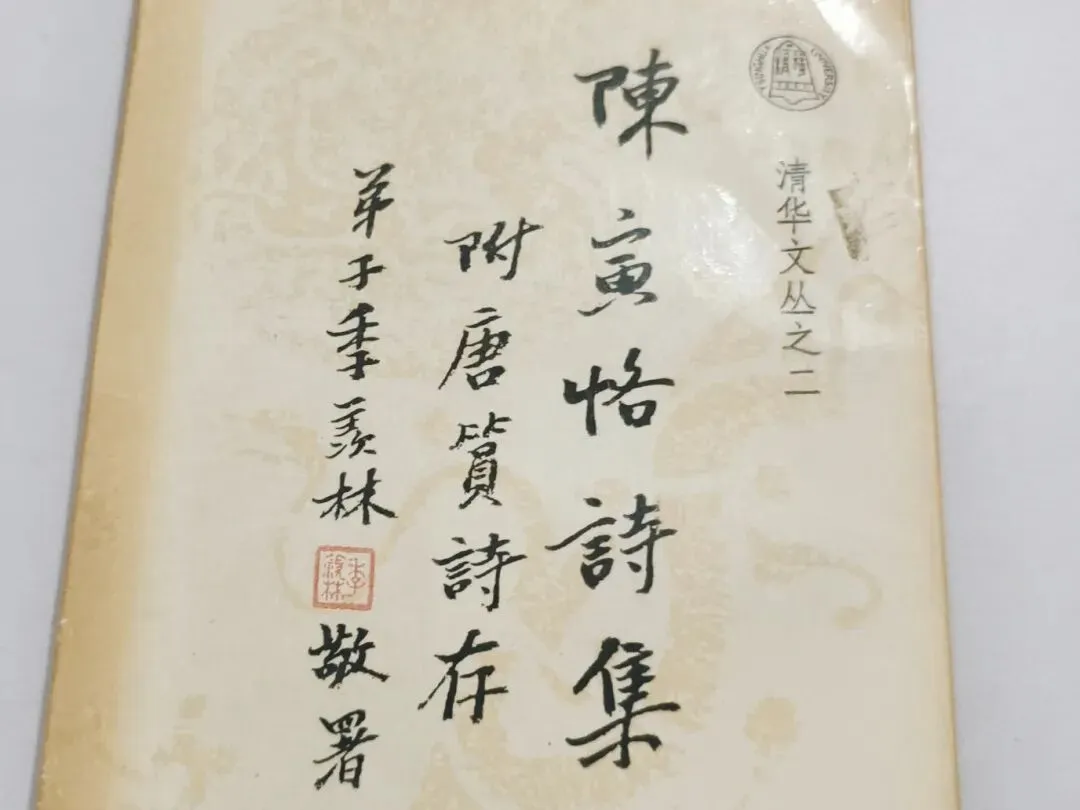 TSINGHUA UNIVERSITY
清华文丛之二
陳寅恪詩集
附唐篔詩存
弟子季羨林
季羨林
敬署